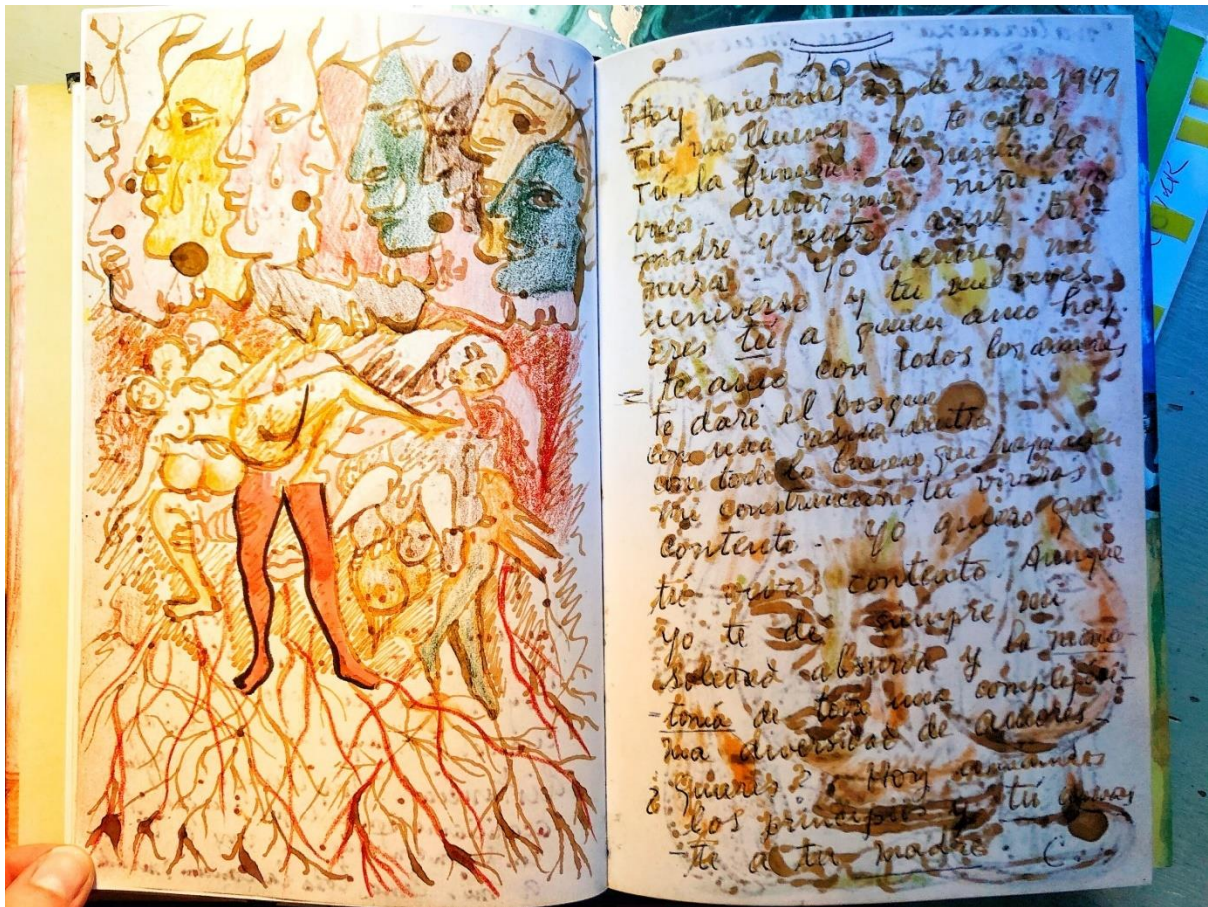 Hoy miercoles 22 de Enero 1947
Tú me llueves - yo te cielo
Tú, la finura, la niñez, la
vida - amor mío - niño - viejo
madre y centro - azul - ter-
nura - Yo te entrego mi
universo y tu me vives
Eres tu a quien amo hoy.
te amo con todos los amores
te daré el bosque
con una casita dentro
con todo lo bueno que haya en
mi construcción, tu vivirás
contento - yo quiero que
tú vivas contento. Aunque
yo te dé siempre mi
soledad absurda y la mono-
tonía de toda una complejísi-
ma diversidad de amores -
¿Quieres? Hoy
los principios y tú amas
-te a tu madre C